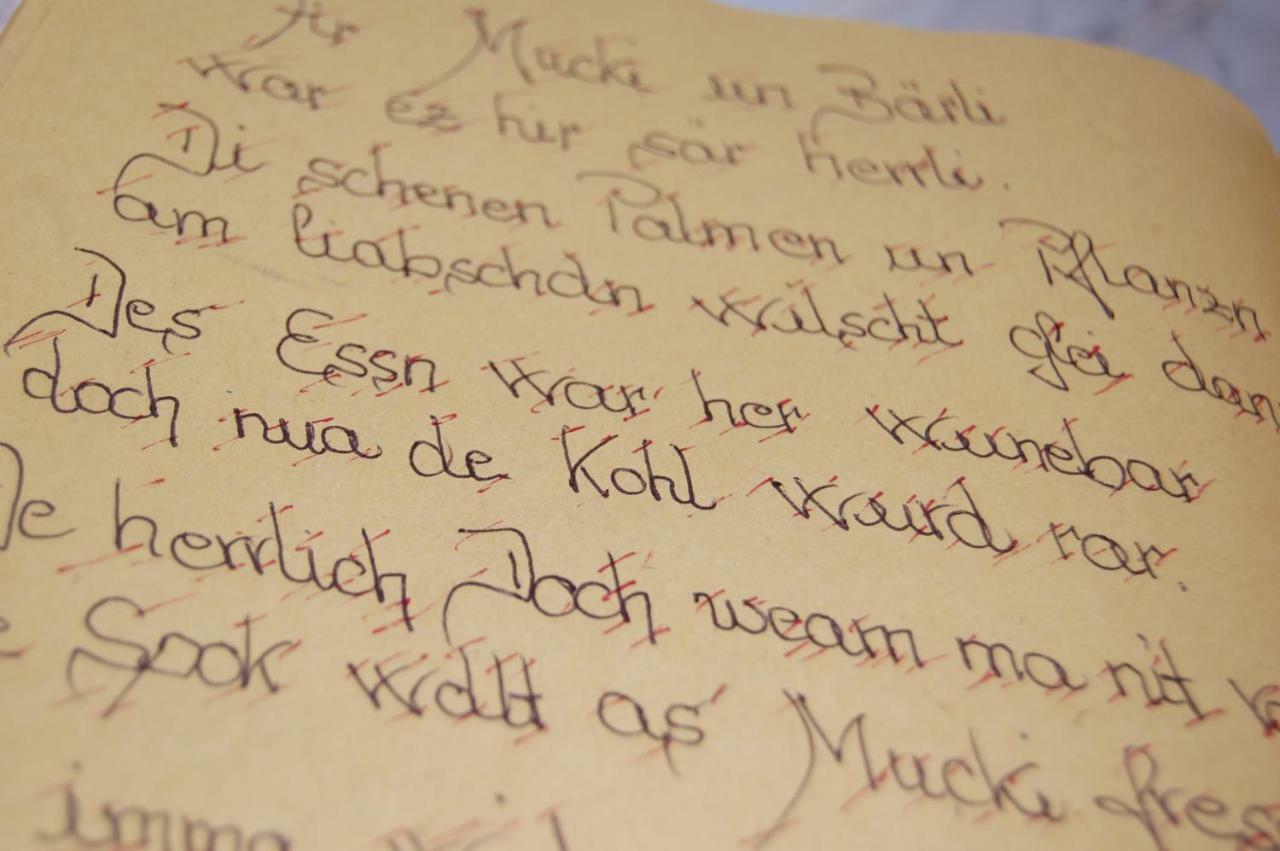 für Mucki un Bärli
war ez hir sär herrli.
Di schenen Palmen un Pflanzn
am liabschdn wilscht glei dan
Des Essn war her wunebar
doch nua de Kohl wurd rar.
De herrlich Doch weam ma nit
Sook wdlt as Mucki fres
imma